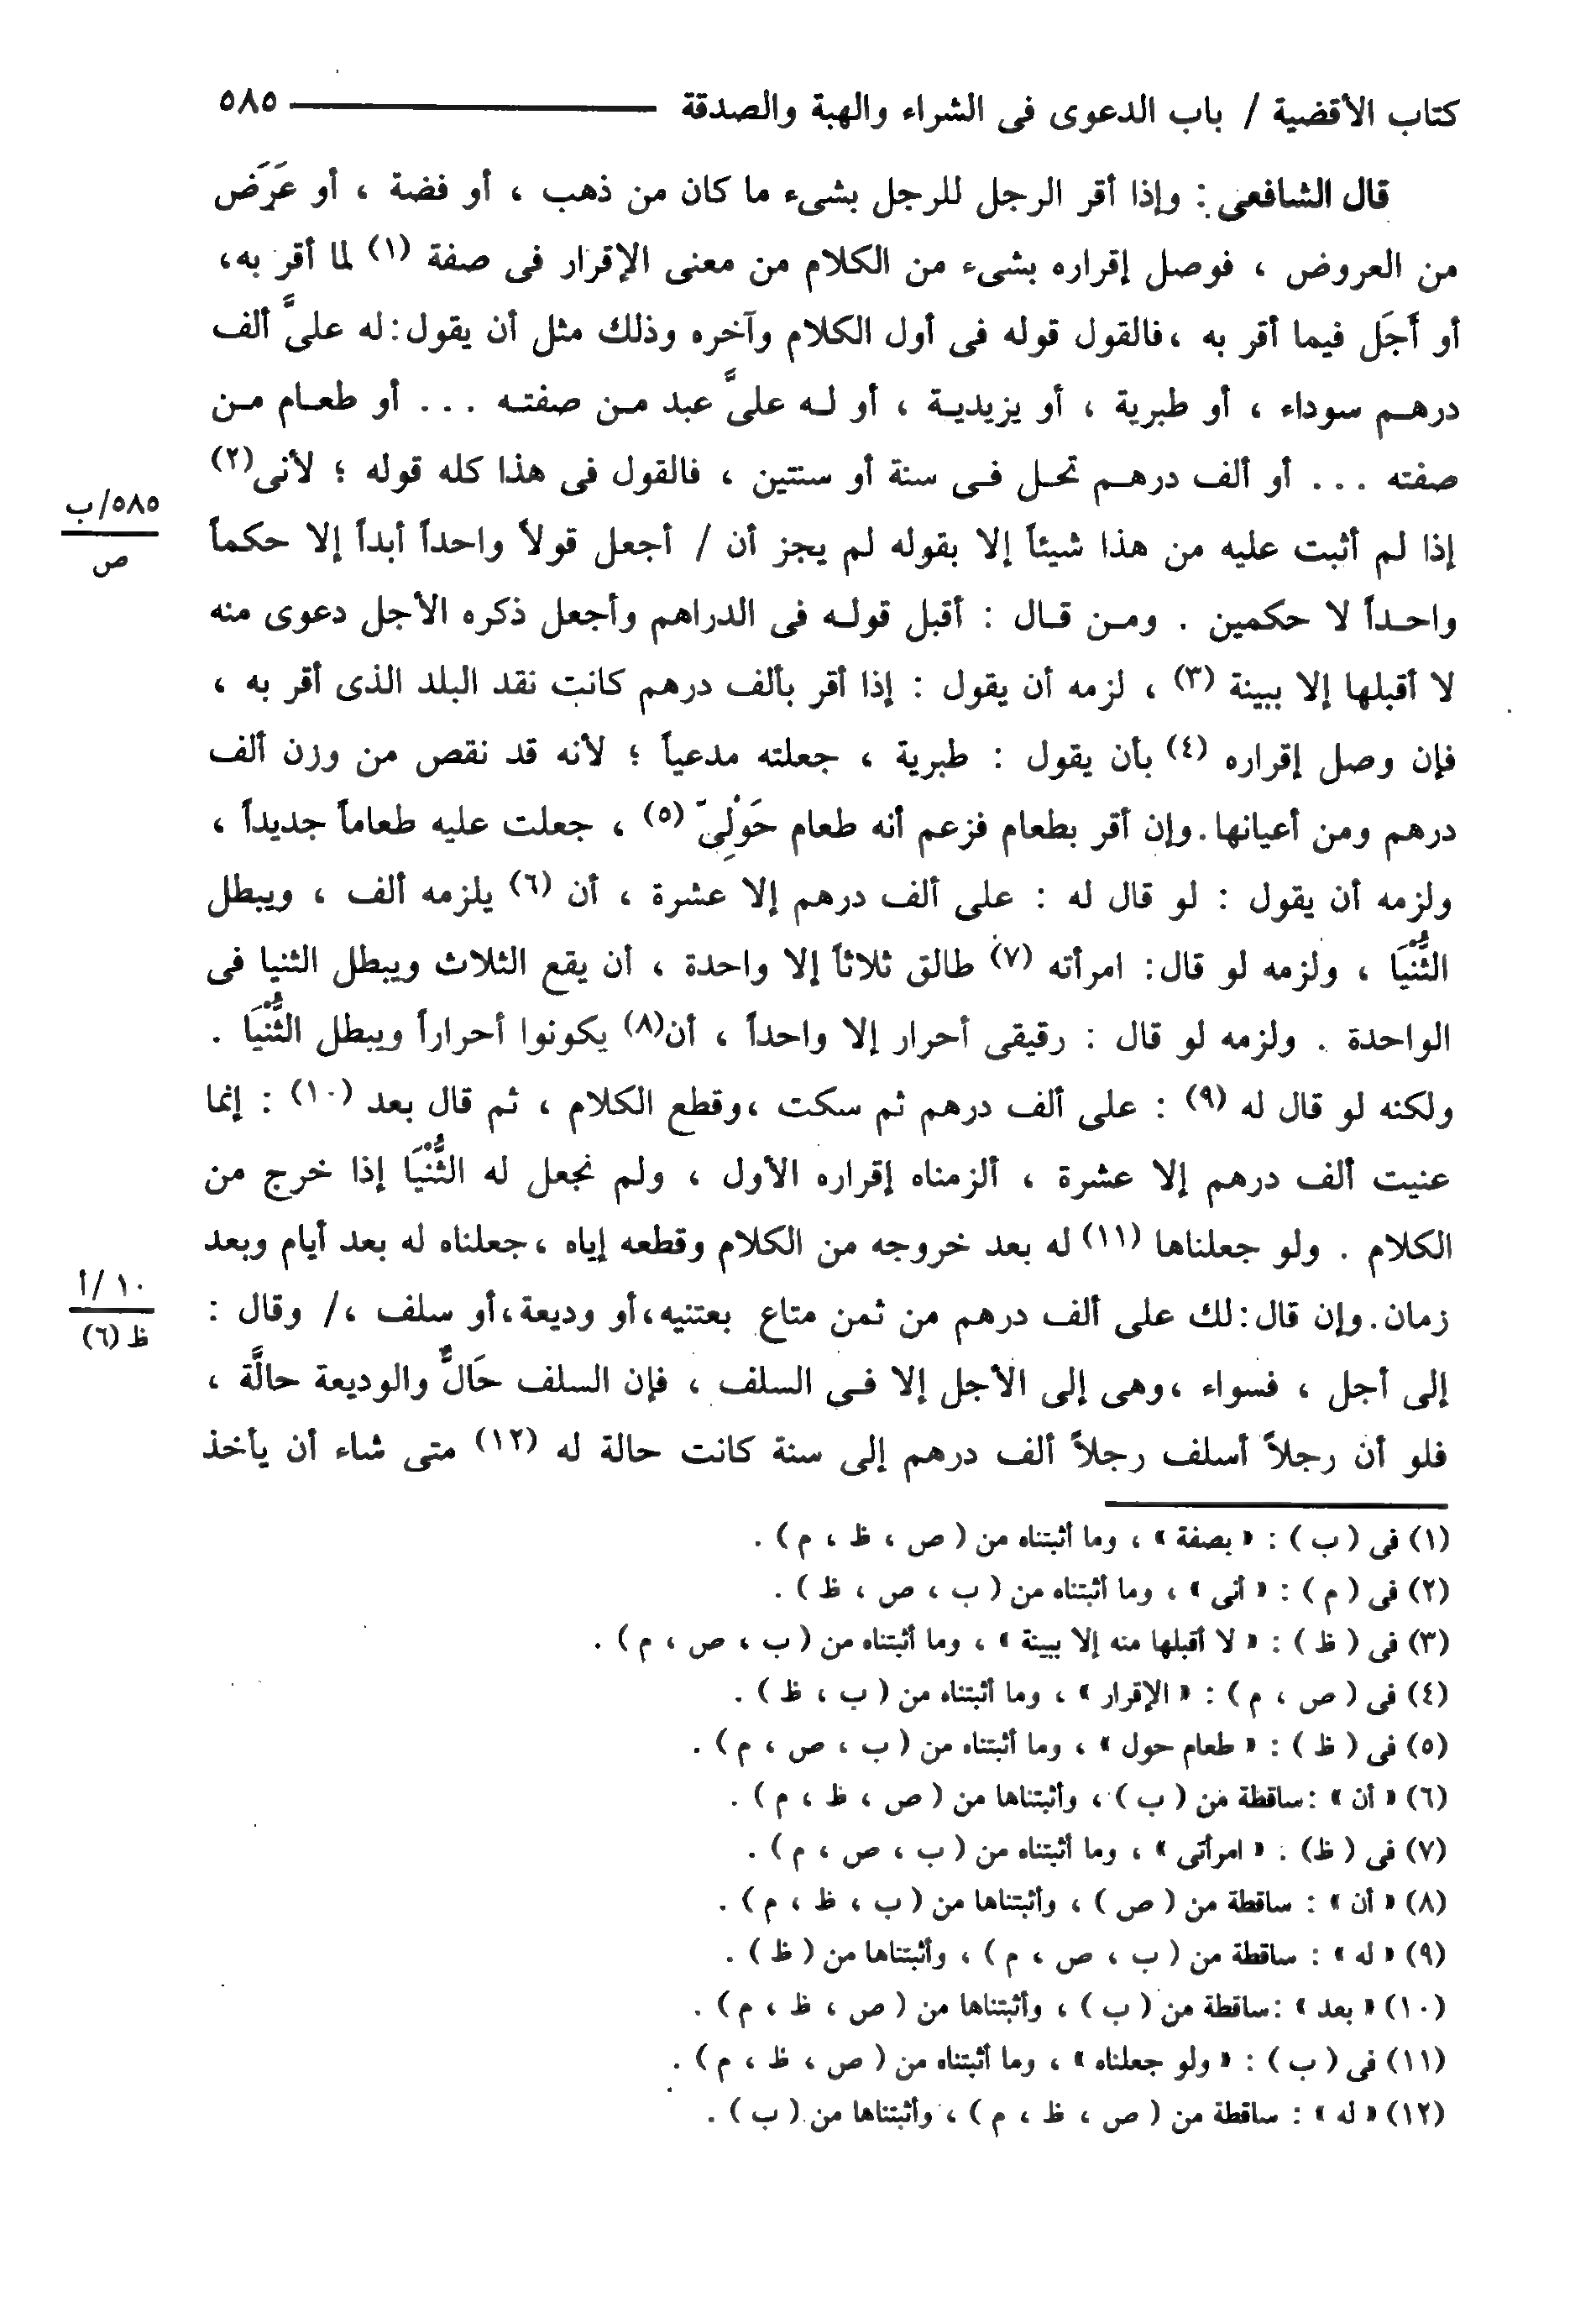 كتاب الأقضية / باب الدعوى فى الشراء والهبة والصدقة ـــــــــ ٥٨٥
قال الشافعى : وإذا أقر الرجل للرجل بشىء ما كان من ذهب ، أو فضة ، أو عَرَض
من العروض ، فوصل إقراره بشىء من الكلام من معنى الإقرار فى صفة (١) لما أقر به،
أو أَجَل فيما أقر به ،فالقول قوله فى أول الكلام وآخره وذلك مثل أن يقول:له علىَّ ألف
درهـم سوداء ، أو طبرية ، أو يزيديـة ، أو لـه علىَّ عبد مـن صفتـه ... أو طعـام مـن
صفته ... أو ألف درهـم تحـل فـى سنة أو سنتين ، فالقول فى هذا كله قوله ؛ لأنى(٢)
٥٨٥/ب
ص
إذا لم أثبت عليه من هذا شيئاً إلا بقوله لم يجز أن / أجعل قولاً واحداً أبداً إلا حكماً
واحـداً لا حكمين . ومـن قـال : أقبل قولـه فى الدراهم وأجعل ذكره الأجل دعوى منه
لا أقبلها إلا ببينة (٣) ، لزمه أن يقول : إذا أقر بألف درهم كانت نقد البلد الذى أقر به ،
فإن وصل إقراره (٤) بأن يقول : طبرية ، جعلته مدعياً ؛ لأنه قد نقص من وزن ألف
درهم ومن أعيانها.وإن أقر بطعام فزعم أنه طعام حَوْلِىّ (٥) ، جعلت عليه طعاماً جديداً ،
ولزمه أن يقول : لو قال له : على ألف درهم إلا عشرة ، أن (٦) يلزمه ألف ، ويبطل
الثُّنْيَا ، ولزمه لو قال: امرأته (٧) طالق ثلاثاً إلا واحدة ، أن يقع الثلاث ويبطل الثنيا فى
الواحدة . ولزمه لو قال : رقيقى أحرار إلا واحداً ، أن(٨) يكونوا أحراراً ويبطل الثُّنْيَا .
ولكنه لو قال له (٩) : على ألف درهم ثم سكت ،وقطع الكلام ، ثم قال بعد (١٠) : إنما
عنيت ألف درهم إلا عشرة ، ألزمناه إقراره الأول ، ولم نجعل له الثُّنْيَا إذا خرج من
الكلام . ولو جعلناها (١١) له بعد خروجه من الكلام وقطعه إياه ،جعلناه له بعد أيام وبعد
١٠/أ
ظ (٦)
زمان.وإن قال:لك على ألف درهم من ثمن متاع بعتنيه،أو وديعة،أو سلف ،/ وقال :
إلى أجل ، فسواء ،وهى إلى الأجل إلا فـى السلف ، فإن السلف حَالٌّ والوديعة حالَّة ،
فلو أن رجلاً أسلف رجلاً ألف درهم إلى سنة كانت حالة له (١٢) متى شاء أن يأخذ
(١) فى ( ب ) : « بصفة » ، وما أثبتناه من ( ص ، ظ ، م ) .
(٢) فى ( م ) : « أنى » ، وما أثبتناه من ( ب ، ص ، ظ ) .
(٣) فى ( ظ ) : « لا أقبلها منه إلا ببينة » ، وما أثبتناه من ( ب ، ص ، م ) .
(٤) فى ( ص ، م ) : « الإقرار » ، وما أثبتناه من ( ب ، ظ ) .
(٥) فى ( ظ ) : « طعام حول » ، وما أثبتناه من ( ب ، ص ، م ) .
(٦) « أن » :ساقطة من ( ب ) ، وأثبتناها من ( ص ، ظ ، م ) .
(٧) فى ( ظ) : « امرأتى » ، وما أثبتناه من ( ب ، ص ، م ) .
(٨) « أن » : ساقطة من ( ص ) ، وأثبتناها من ( ب ، ظ ، م ) .
(٩) « له » : ساقطة من ( ب ، ص ، م ) ، وأثبتناها من ( ظ ) .
(١٠) « بعد » :ساقطة من ( ب ) ، وأثبتناها من ( ص ، ظ ، م ) .
(١١) فى ( ب ) : « ولو جعلناه » ، وما أثبتناه من ( ص ، ظ ، م ) .
(١٢) « له » : ساقطة من ( ص ، ظ ، م ) ، وأثبتناها من ( ب ) .